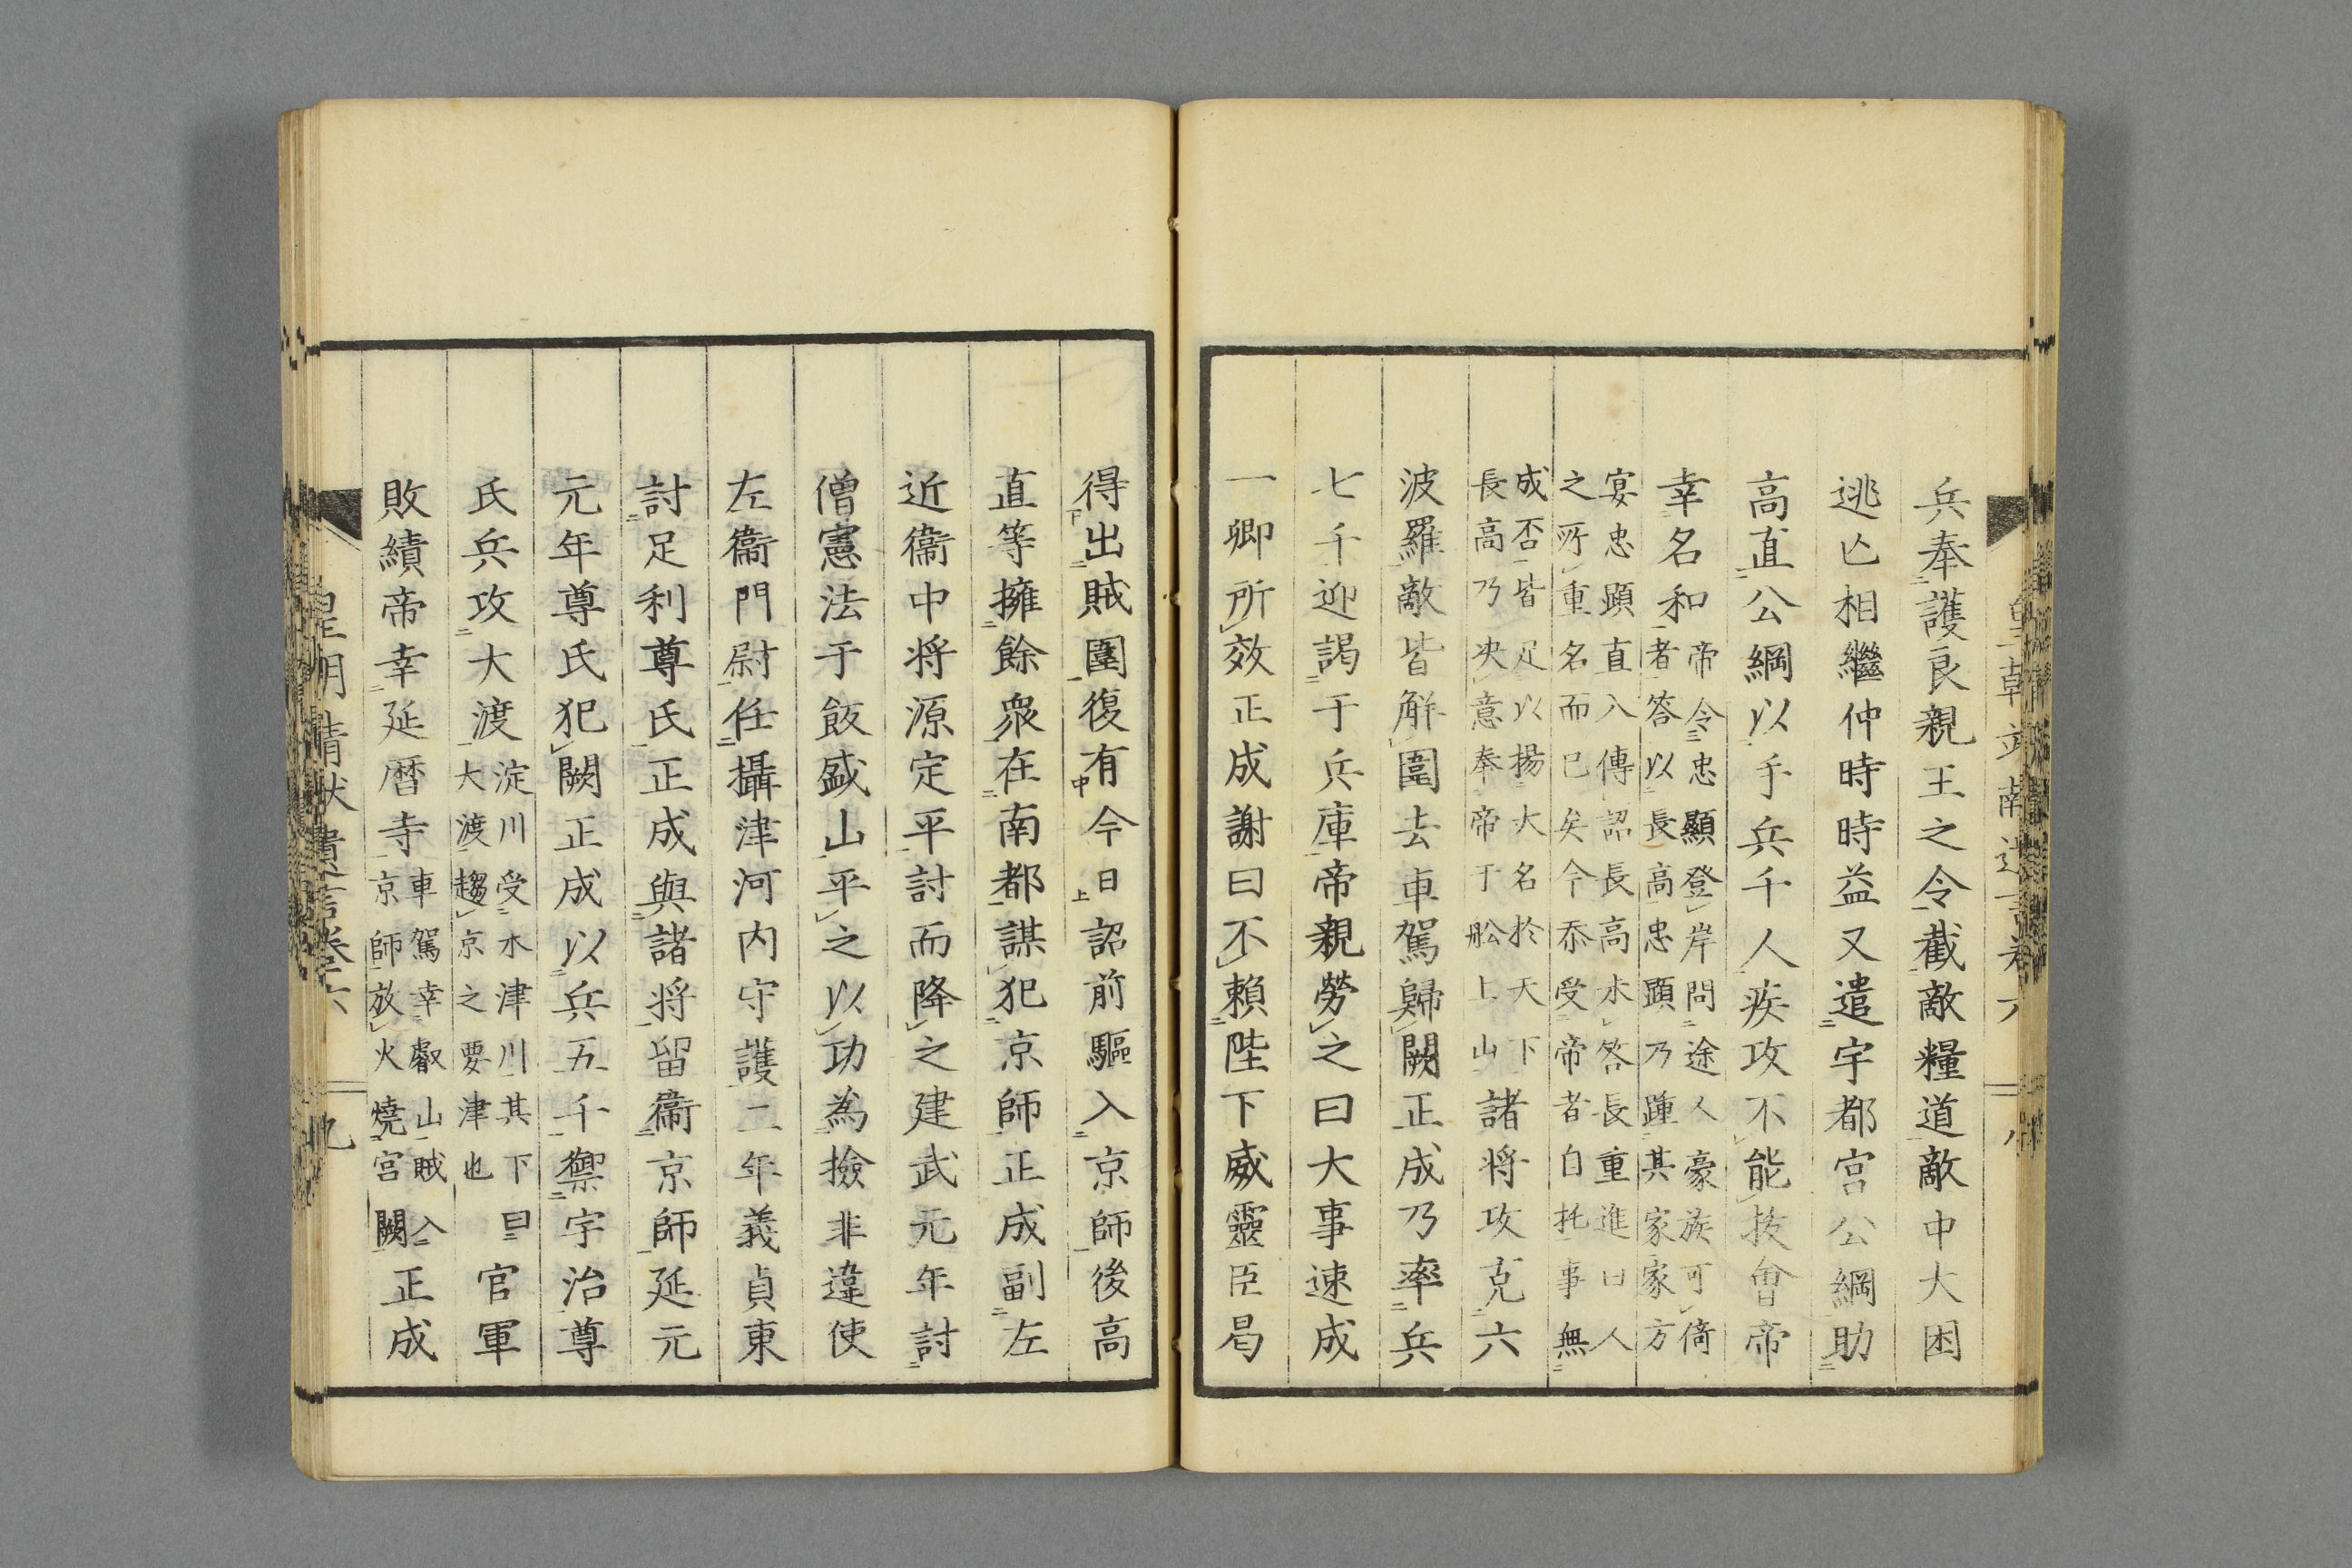 兵奉護良親王之令截敵糧道敵中大困
逃亡相繼仲時時益又遣宇都宮公綱助
高直公綱以手兵千人疾攻不能拔會帝
幸名和帝令忠顯登岸問途人豪族可倚
者答以長高忠顯乃踵其家家方
宴忠顯直入傳詔長高未答長重進曰人
之所重名而已矣今忝受帝者自托事無
成否皆足以揚大名於天下
長高乃决意奉帝于舩上山諸将攻克六
波羅敵皆解圍去車駕歸闕正成乃率兵
七千迎謁于兵庫帝親勞之曰大事速成
一卿所效正成謝曰不賴陛下威靈臣曷
得出賊圍復有今日詔前驅入京師後高
直等擁餘衆在南都謀犯京師正成副左
近衞中将源定平討而降之建武元年討
僧憲法于飯盛山平之以功為撿非違使
左衞門尉任攝津河内守護二年義貞東
討足利尊氏正成與諸将留衞京師延元
元年尊氏犯闕正成以兵五千禦宇治尊
氏兵攻大渡淀川受木津川其下曰
大渡趨京之要津也官軍
敗績帝幸延暦寺車駕幸叡山賊入
京師放火燒宮闕正成